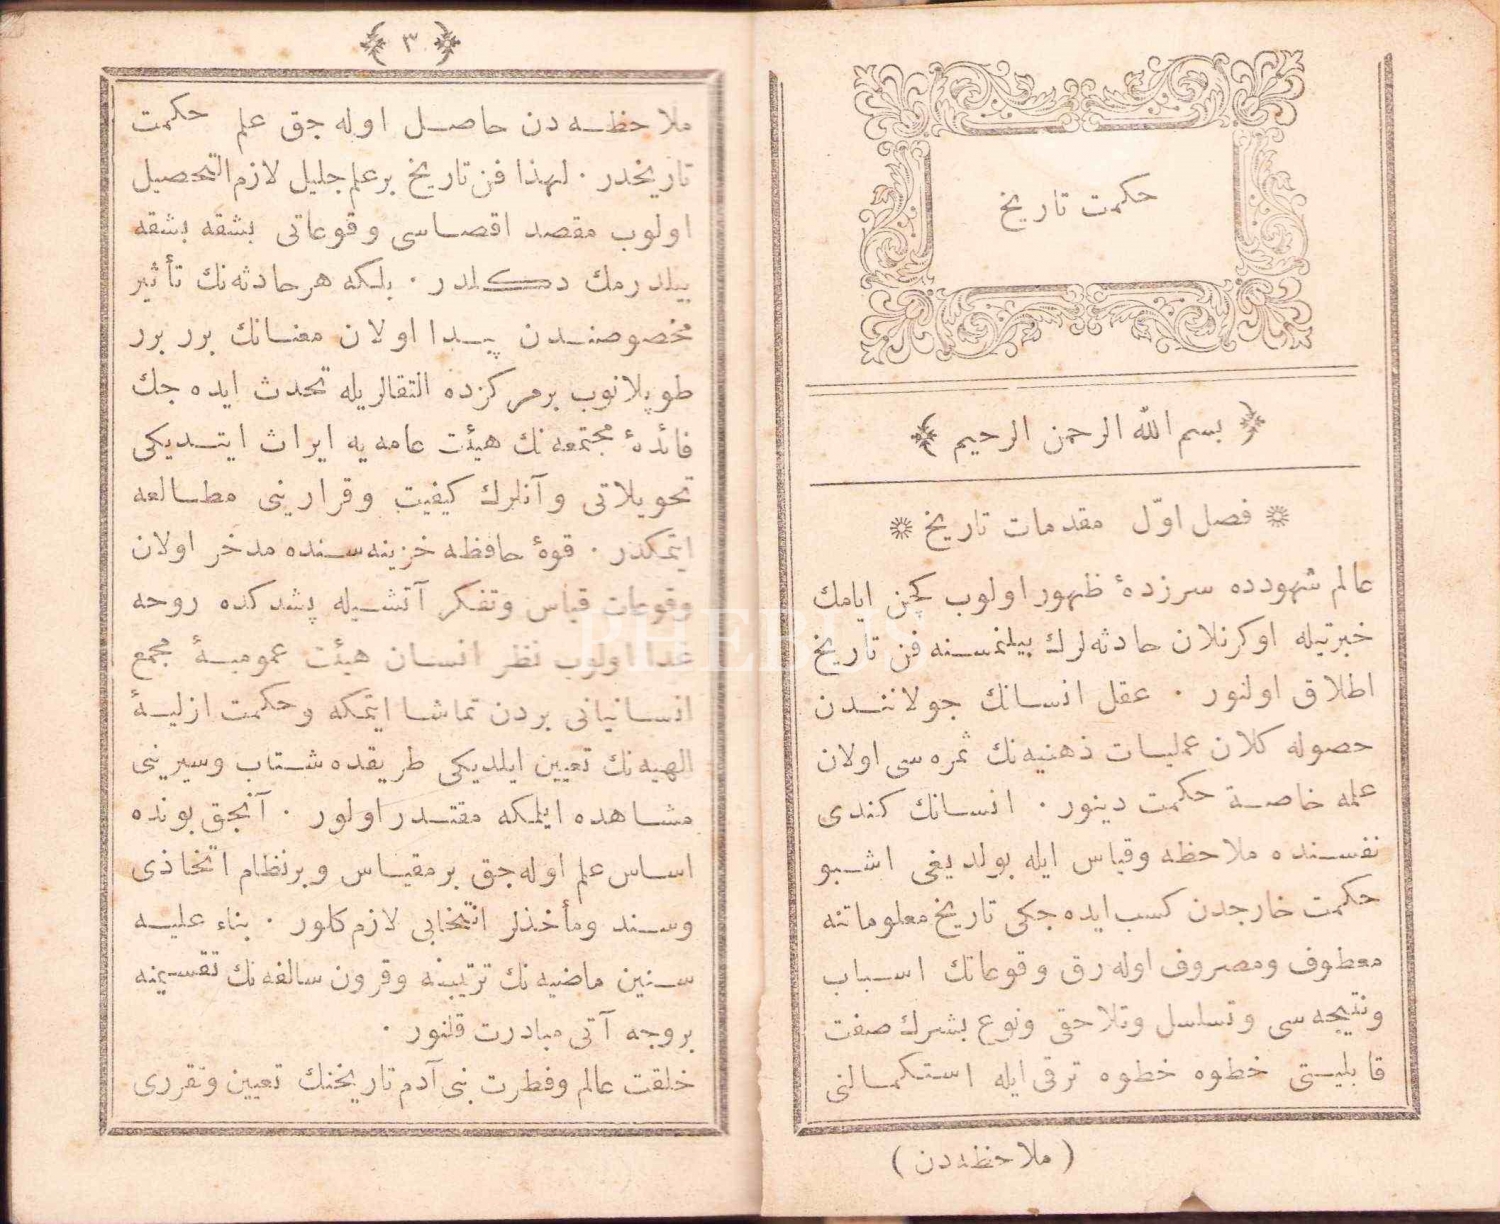 حكمت تاريخ
بسم الله الرحمن الرحيم
فصل اوّل مقدمات تاريخ
عالم شهودده سرزدۀ ظهور اولوب كچن ايامك
خبرتيله اوكرنلان حادثه‌لرك بيلنمسنه فن تاريخ
اطلاق اولنور · عقل انسانك جولانندن
حصوله كلان عمليات ذهنيه‌نك ثمره‌سى اولان
علمه خاصة حكمت دينور · انسانك كندى
نفسنده ملاحظه وقياس ايله بولديغى اشبو
حكمت خارجدن كسب ايده‌جكى تاريخ معلوماتنه
معطوف ومصروف اوله‌رق وقوعاتك اسباب
ونتيجه‌سى وتسلسل وتلاحقى ونوع بشرك صفت
قابليتى خطوه خطوه ترقى ايله استكمالنى
( ملاحظه‌دن )
٣
ملاحظه‌دن حاصل اوله‌جق علم حكمت
تاريخدر · لهذا فن تاريخ برعلم جليل لازم التحصيل
اولوب مقصد اقصاسى وقوعاتى بشقه بشقه
بيلدرمك دكلدر · بلكه هرحادثه‌نك تأثير
مخصوصندن پيدا اولان معنانك برر برر
طوپلانوب برمركزده التقالريله تحدث ايده‌جك
فائدۀ مجتمعه‌نك هيئت عامه‌يه ايراث ايتديكى
تحويلاتى وآنلرك كيفيت وقرارينى مطالعه
ايتمكدر · قوۀ حافظه خزينه‌سنده مدخر اولان
وقوعات قياس وتفكر آتشيله پشدكده روحه
غدا اولوب نظر انسان هيئت عموميۀ مجمع
انسانياتى بردن تماشا ايتمكه وحكمت ازليۀ
الهيه‌نك تعيين ايلديكى طريقده شتاب وسيرينى
مشاهده ايلمكه مقتدر اولور · آنجق بونده
اساس علم اوله‌جق برمقياس وبرنظام اتخاذى
وسند ومأخذلر انتخابى لازم كلور · بناء عليه
سنين ماضيه‌نك ترتيبنه وقرون سالفه‌نك تقسيمنه
بروجه آتى مبادرت قلنور ·
خلقت عالم وفطرت بنى آدم تاريخنك تعيين وتقررى
PHEBUS